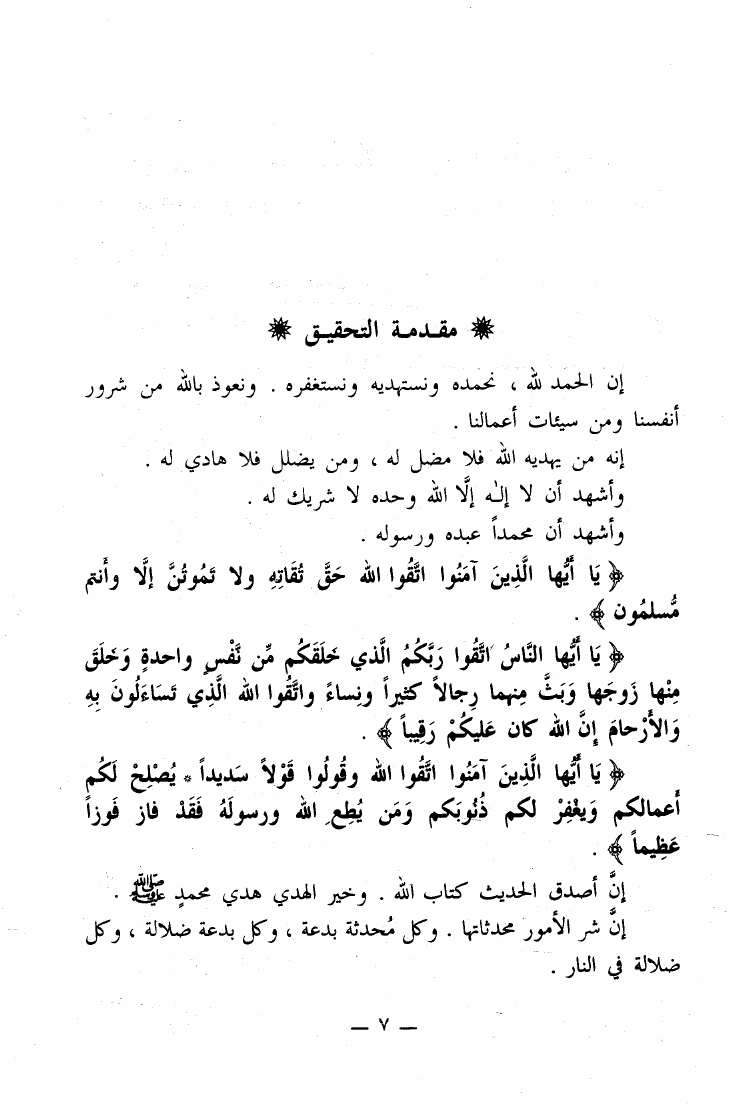 ❋ مقـدمـة التحقيـق ❋
إن الحمد لله ، نحمده ونستهديه ونستغفره . ونعوذ بالله من شرور
أنفسنا ومن سيئات أعمالنا .
إنه من يهديه الله فلا مضل له ، ومن يضلل فلا هادي له .
وأشهد أن لا إلـٰه إلَّا الله وحده لا شريك له .
وأشهد أن محمداً عبده ورسوله .
﴿ يَا أَيُّها الَّذِينَ آمَنُوا اتَّقُوا الله حَقَّ تُقَاتِهِ ولا تَمُوتُنَّ إلَّا وأَنتم
مُّسلمُون ﴾ .
﴿ يَا أَيُّها النَّاسُ اتَّقُوا رَبَّكُمُ الَّذي خلَقَكُم مِّن نَّفْسٍ واحدةٍ وَخَلَقَ
مِنْها زَوجَها وَبَثَّ مِنهما رِجالاً كثيراً ونِساءً واتَّقُوا الله الَّذِي تَسَاءَلُونَ بِهِ
وَالأَرْحامَ إِنَّ الله كان عَليكُمْ رَقِيباً ﴾ .
﴿ يَا أَيُّها الَّذِينَ آمَنُوا اتَّقُوا الله وقُولُوا قَوْلاً سَديداً * يُصْلِحْ لَكُم
أَعمالكم وَيغْفِرْ لكم ذُنُوبَكم وَمَن يُطِعِ الله ورسولَهُ فَقَدْ فاز فَوزاً
عَظِيماً ﴾ .
إنَّ أصدق الحديث كتاب الله . وخير الهدي هدي محمدٍ ﷺ .
إنَّ شر الأمور محدثاتها . وكل مُحدثة بدعة ، وكل بدعة ضلالة ، وكل
ضلالة في النار .
— ٧ —